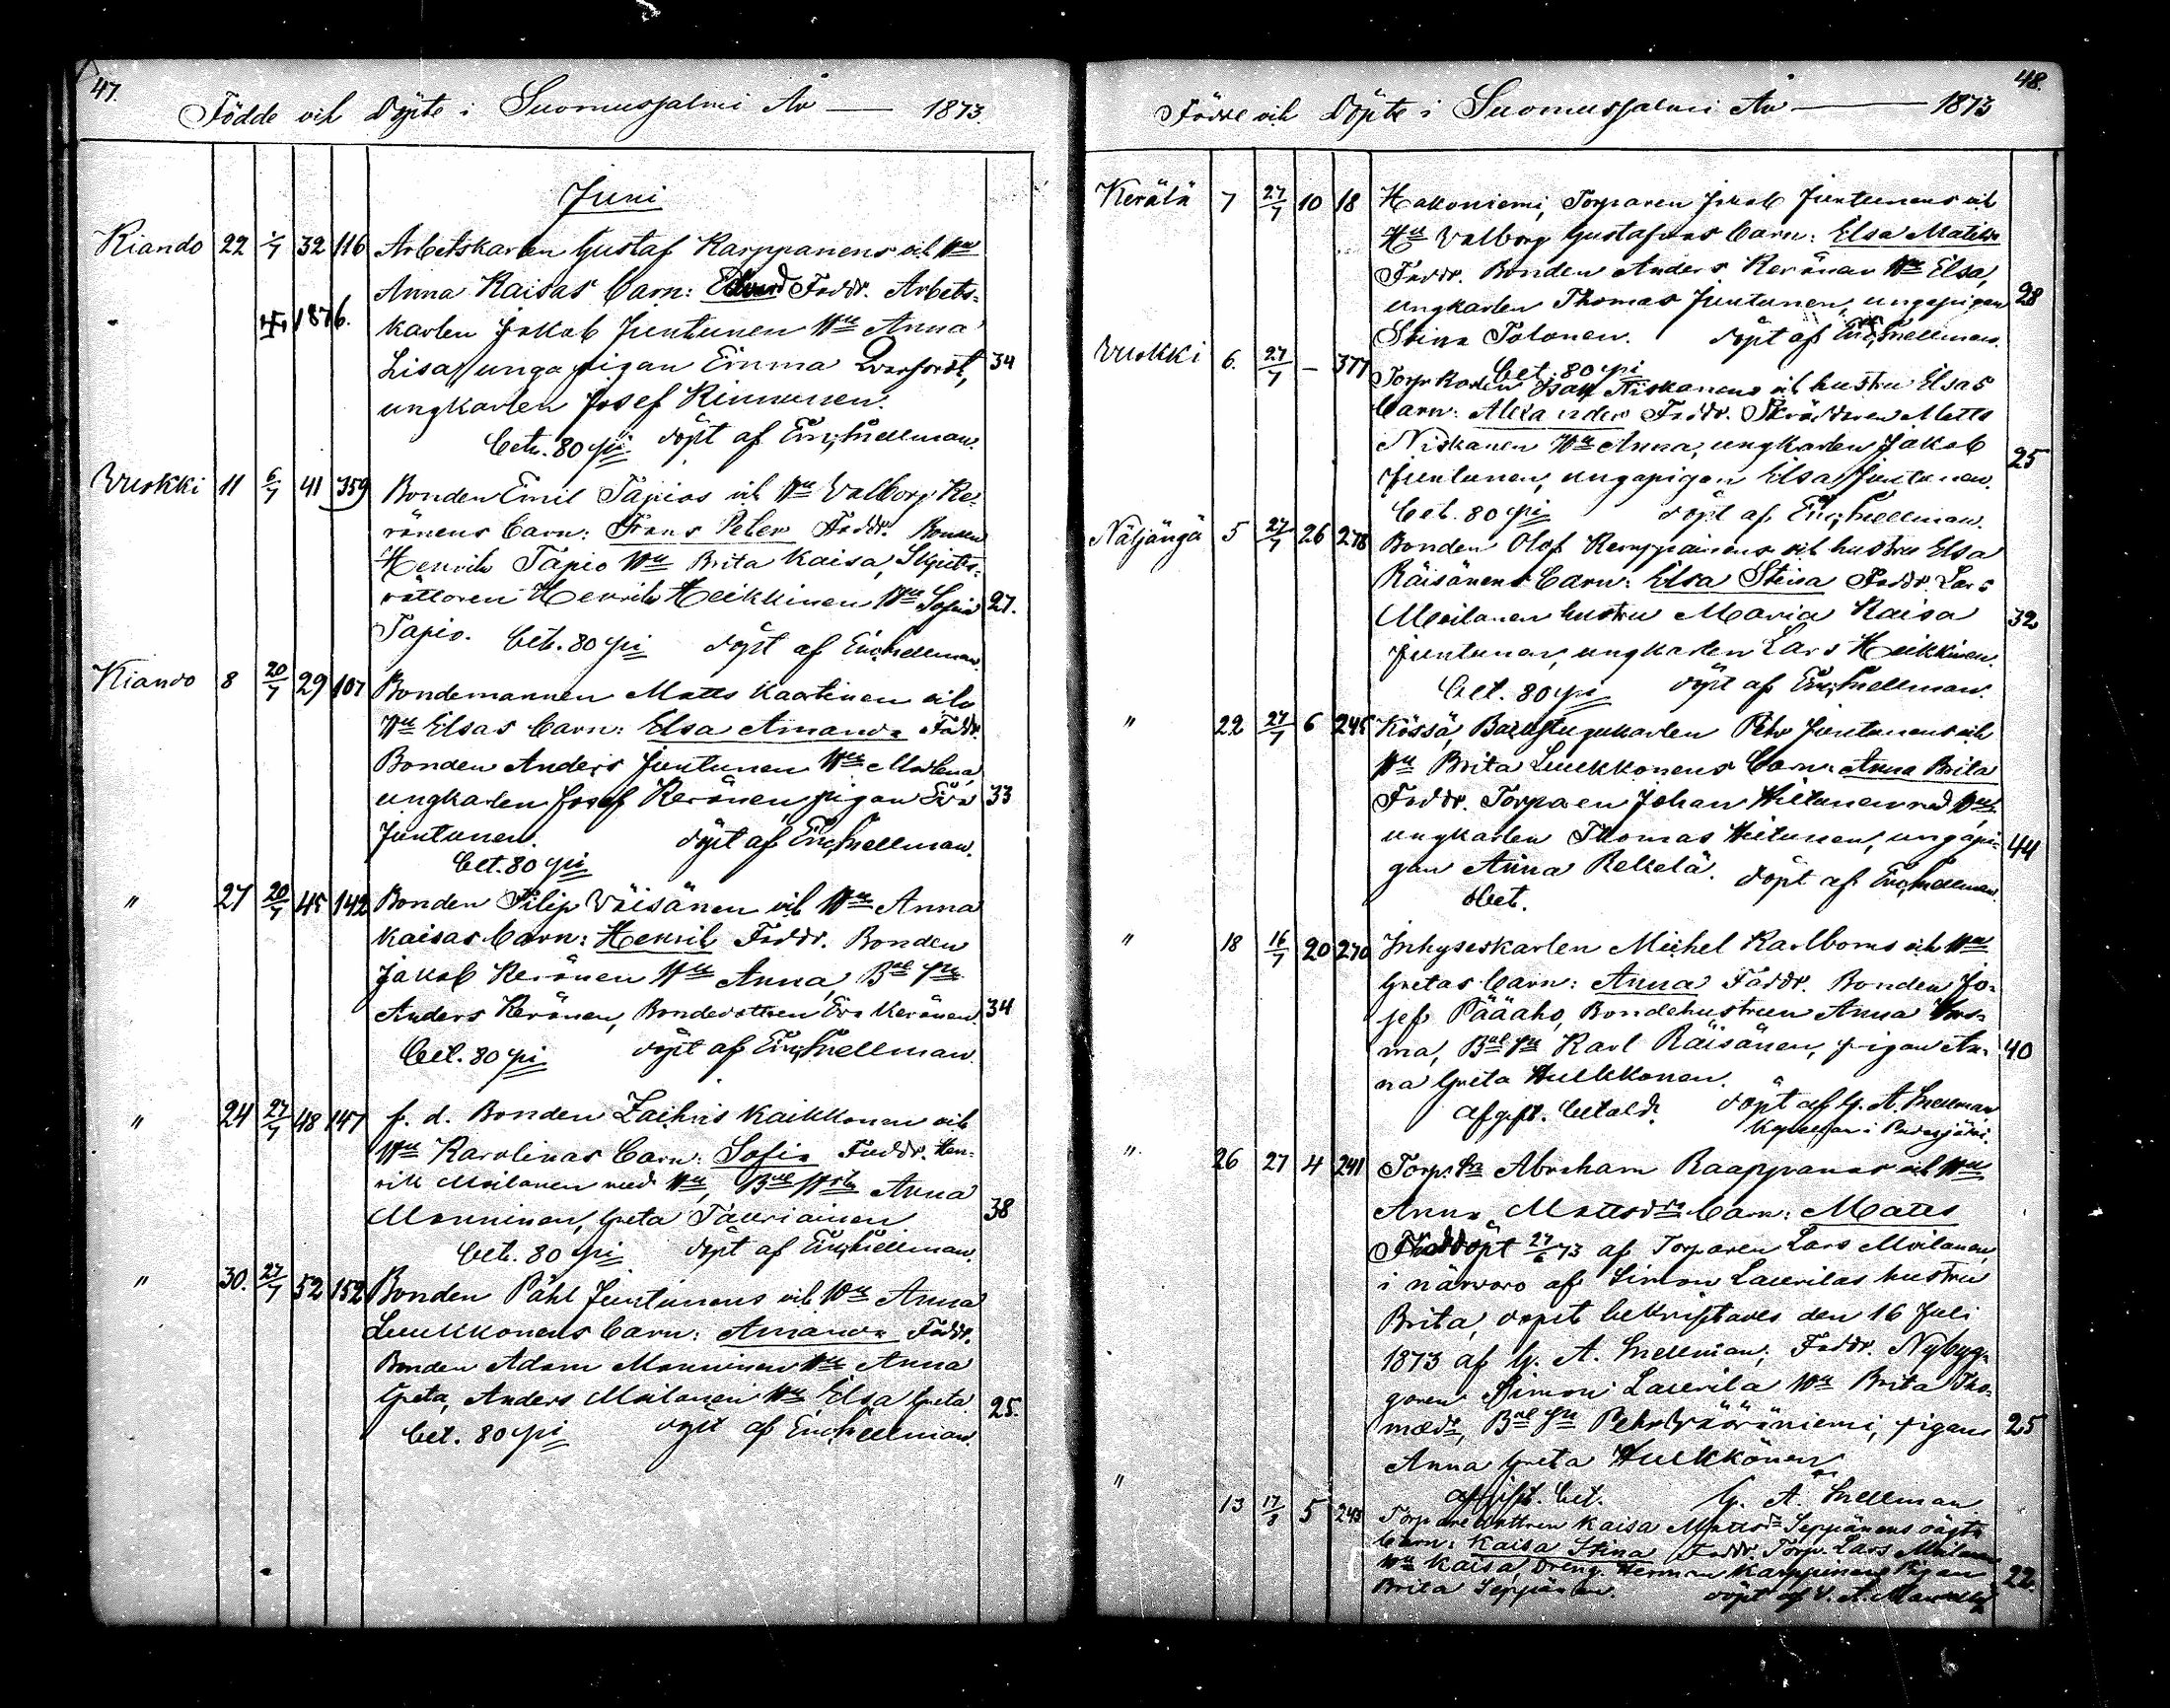 47.
Födde och Döpte i Suomussalmi År — 1873.
Juni
Kiando 22 1/7 32 116 Arbetskarlen Gustaf Karppanens och Hu
Anna Kaisas barn: Edvard Faddr. Arbets-
1876. karlen Jakob Juntunen Hu Anna
Lisa, unga pigan Emma Qvarfordt, 34
ungkarlen Josef Kinnunen.
bet. 80 pi döpt af Enc. Snellman.
Vuokki 11 6/7 41 359 Bonden Emil Tapios och Hu Valborg Ke-
ränens barn: Frans Peter Faddr. Bonden
Henrik Tapio Hu Brita Kaisa, Skjuts-
rättaren Henrik Heikkinen Hu Sofia 27.
Tapio. bet. 80 pi döpt af Enc. Snellman.
Kiando 8 20/7 29 107 Bondemannen Matts Kaartinen och
Hu Elsas barn: Elsa Amanda Faddr.
Bonden Anders Juntunen Hu Malena,
ungkarlen Josef Keränen pigan Eva 33
Juntunen. döpt af Enc. Snellman.
bet. 80 pi
" 27 20/7 45 142 Bonden Filip Väisänen och Hu Anna
Kaisas barn: Henrik Faddr. Bonden
Jakob Keränen Hu Anna,
Anders Keränen, Bondedottren Eva Keränen. 34
bet. 80 pi döpt af Enc. Snellman.
" 24 27/7 48 147 f. d. Bonden Zachris Kaikkonen och
Hu Karolinas barn: Sofia Faddr. Hen-
rik Moilanen med Hu, Anna
Manninen, Greta Tauriainen 38
bet. 80 pi döpt af Enc. Snellman.
" 30. 27/7 52 152 Bonden Påhl Juntunens och Hu Anna
Luukkonens barn: Amanda Faddr.
Bonden Adam Manninen Hu Anna
Greta, Anders Moilanen Hu Elsa Greta. 25.
bet. 80 pi döpt af Enc. Snellman.
48.
Födde och Döpte i Suomussalmi År — 1873
Kerälä 7 27/7 10 18 Hakoniemi, Torparen Jakob Juntunens och
Hu Valborg Gustafsdrs barn: Elsa Matilda
Faddr. Bonden Anders Keränen Hu Elsa,
ungkarlen Thomas Juntunen, ungapigan 28
Stina Tolonen. döpt af Enc. Snellman.
bet. 80 pi
Vuokki 6. 27/7 — 377 Torp. karlen Isak Niskanens och hustru Elsas
barn: Alexander Faddr. Skräddaren Matts
Niskanen Hu Anna, ungkarlen Jakob
Juntunen, ungapigan Elsa Juntunen. 25
bet. 80 pi döpt af Enc. Snellman.
Näljängä 5 27/7 26 278 Bonden Olof Kemppainens och hustru Elsa
Räisänens barn: Elsa Stina Faddr. Lars
Moilanen hustru Maria Kaisa 32
Juntunen, ungkarlen Lars Heikkinen.
bet. 80 pi döpt af Enc. Snellman.
" 22 27/7 6 245 Kössä, Backstugukarlen Petr Juntunens och
Hu Brita Luukkonens barn: Anna Brita
Faddr. Torparen Johan Hiltunen med Hu,
ungkarlen Thomas Hiltunen, ungapi- 44
gan Anna Rekelä. döpt af Enc. Snellman.
Obet.
" 18 16/7 20 270 Inhyseskarlen Michel Karlboms och Hu
Gretas barn: Anna Faddr. Bonden Jo-
sef Pääaho, Bondehustrun Anna
ma, Karl Räisänen, pigan An- 40
na Greta Hulkkonen.
afgift. betald. döpt af G. A. Snellman
Kapellan i Pudasjärvi
" 26 27 4 241 Torp. Abraham Raappanas och Hu
Anna Mattsdrs barn: Matts
döpt 27/6 73 af Torparen Lars Moilanen,
i närvaro af Simon Laurilas hustru
Brita, dopet bekräftades den 16 Juli
1873 af G. A. Snellman, Faddr. Nybyg-
garen Simon Laurila Hu Brita Tho-
madr, Petr Vääräniemi, pigan 25
Anna Greta Hulkkonen
afgift. bet. G. A. Snellman
" 13 17/8 5 243 Torparedottren Kaisa Mattsdr Seppänens oägta
barn: Kaisa Stina Faddr. Torp. Lars Moilanen
Hu Kaisa, Dreng. Herman Karppinen Pigan 22.
Brita Seppänen. döpt af V. A.